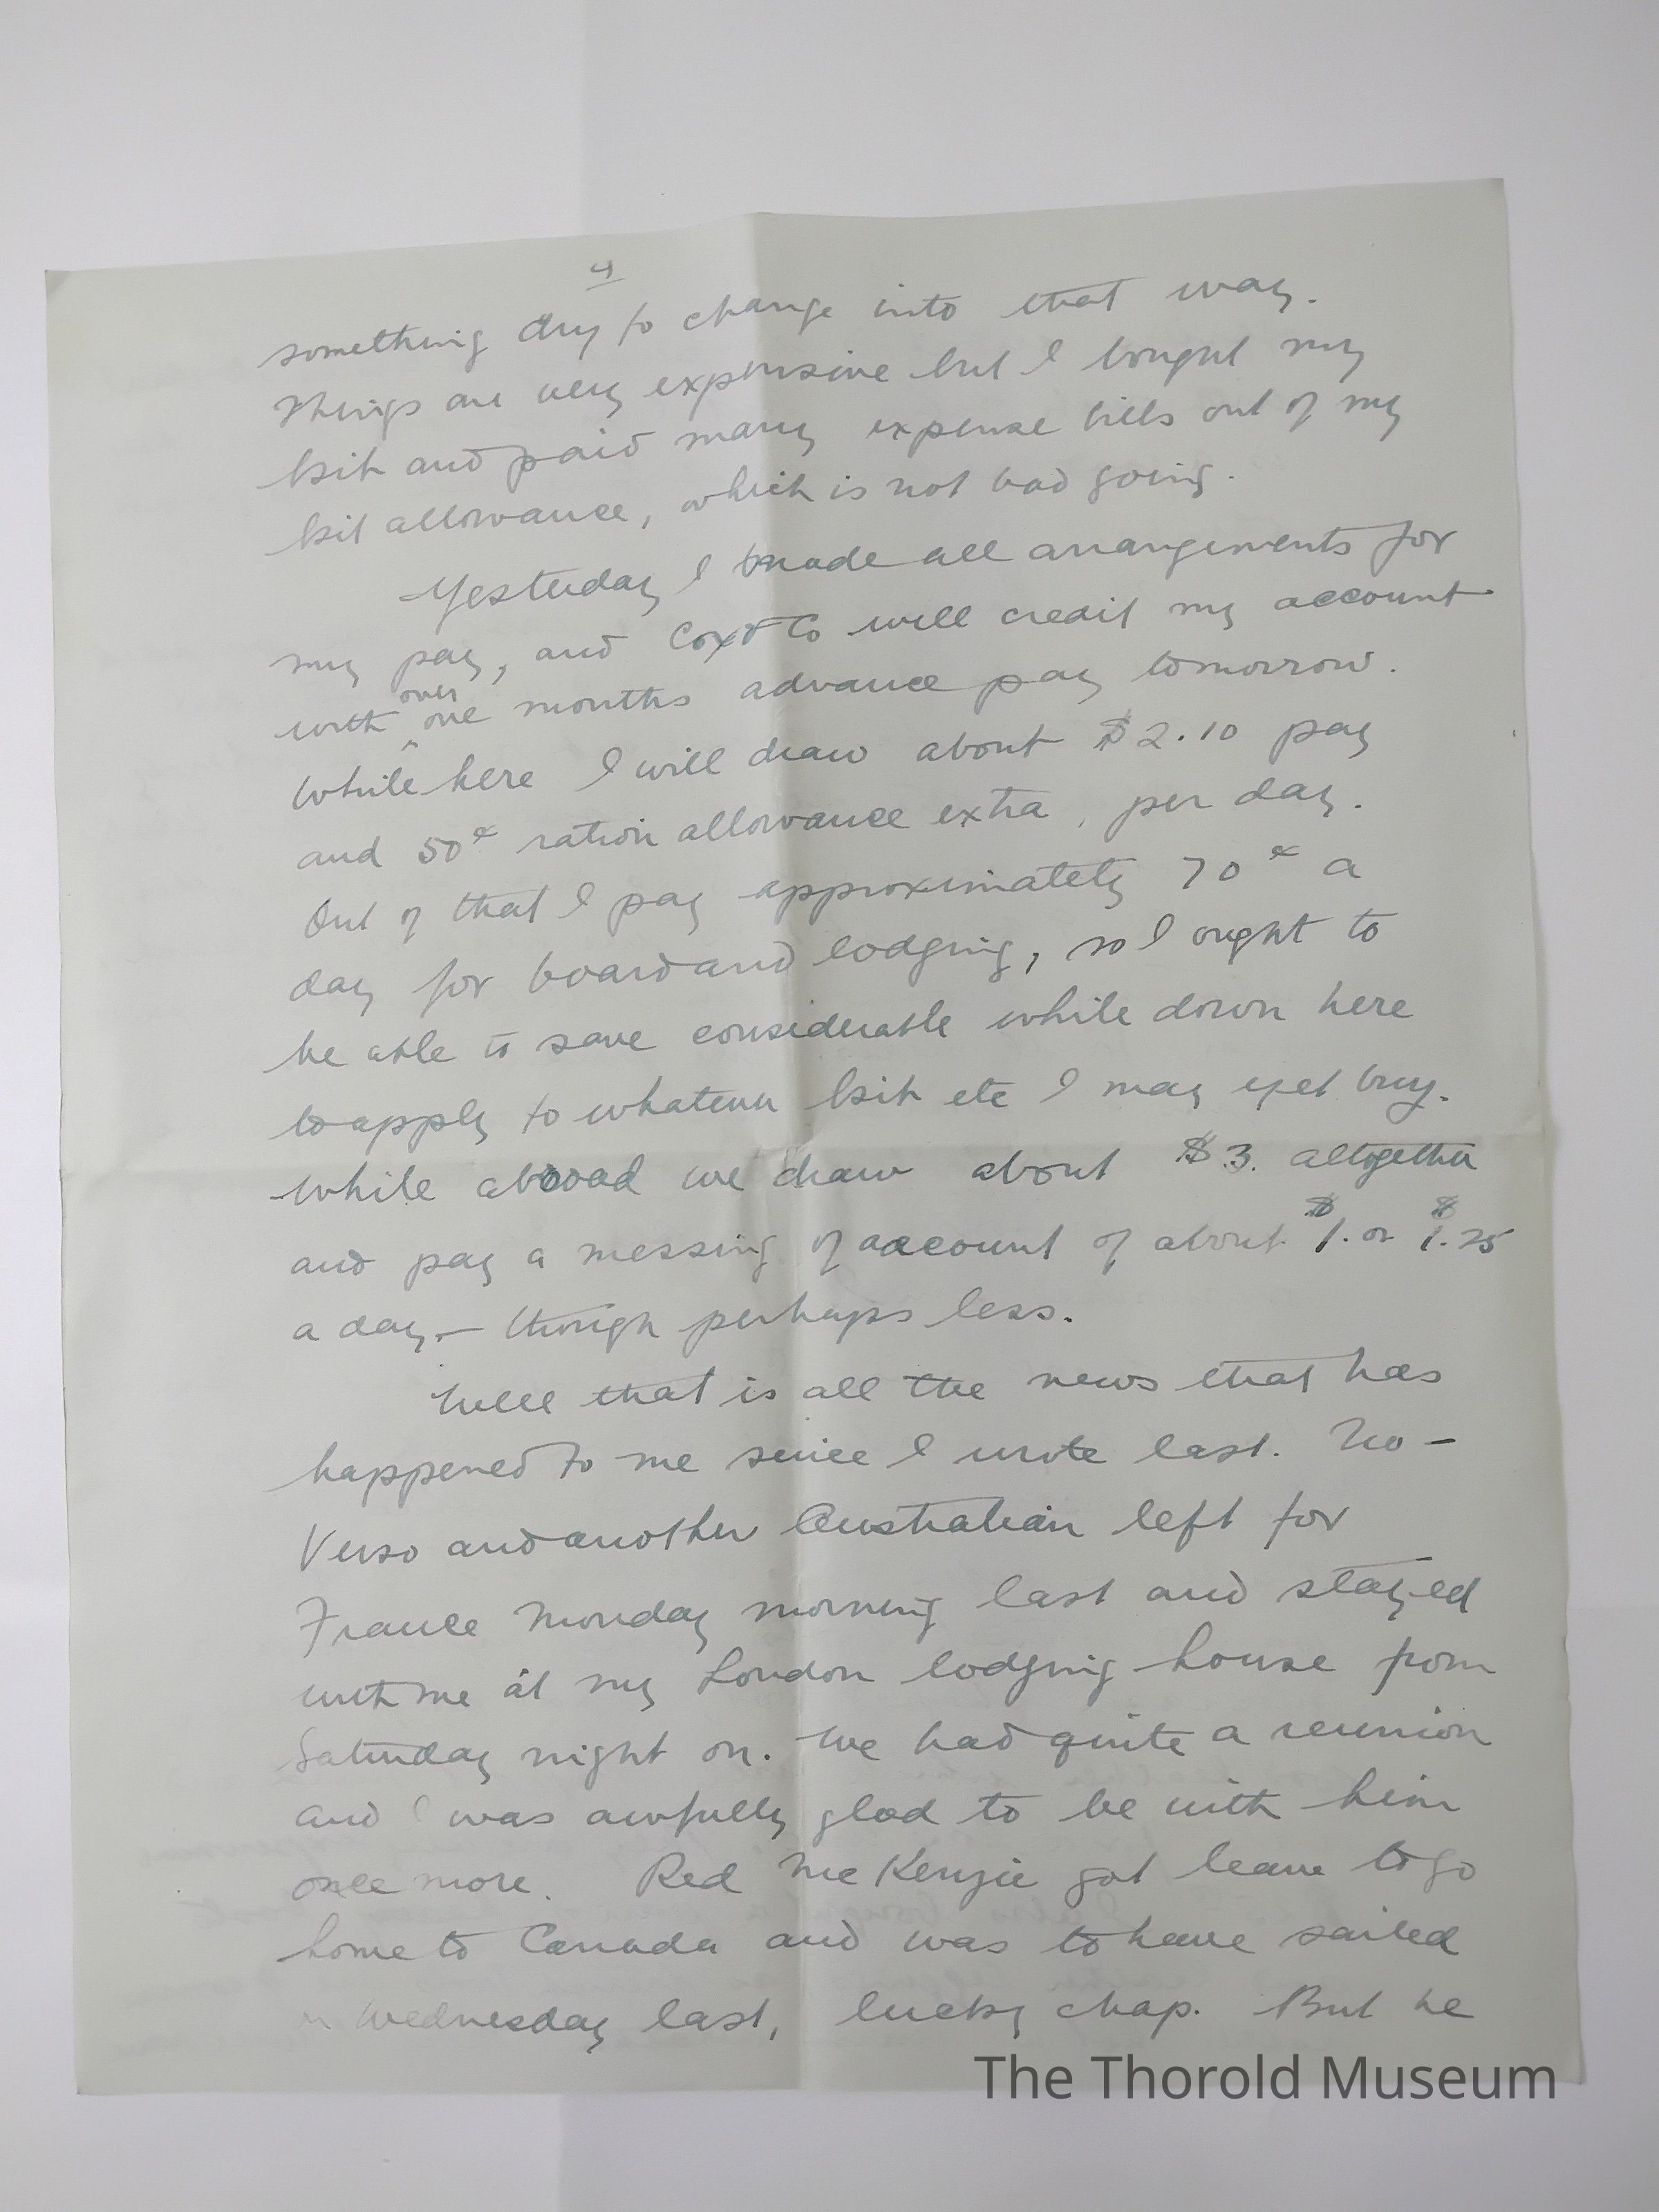 4
something dry to change into that way.
Things are very expensive but I bought my
kit and paid many expense bills out of my
kit allowance, which is not bad going.
Yesterday I made all arrangements for
my pay, and Cox & Co will credit my account
with over one months advance pay tomorrow.
While here I will draw about $2.10 pay
and 50¢ ration allowance extra, per day.
Out of that I pay approximately 70¢ a
day for board and lodging, so I ought to
be able to save considerable while down here
to apply to whatever kit etc I may yet buy.
While abroad we draw about $3. altogether
and pay a messing of account of about $1. or $1.25
a day — though perhaps less.
Well that is all the news that has
happened to me since I wrote last. No —
Verso and another Australian left for
France Monday morning last and stayed
with me at my London lodging house from
Saturday night on. We had quite a reunion
and I was awfully glad to be with him
once more. Red McKenzie got leave to go
home to Canada and was to have sailed
on Wednesday last, lucky chap. But he
The Thorold Museum